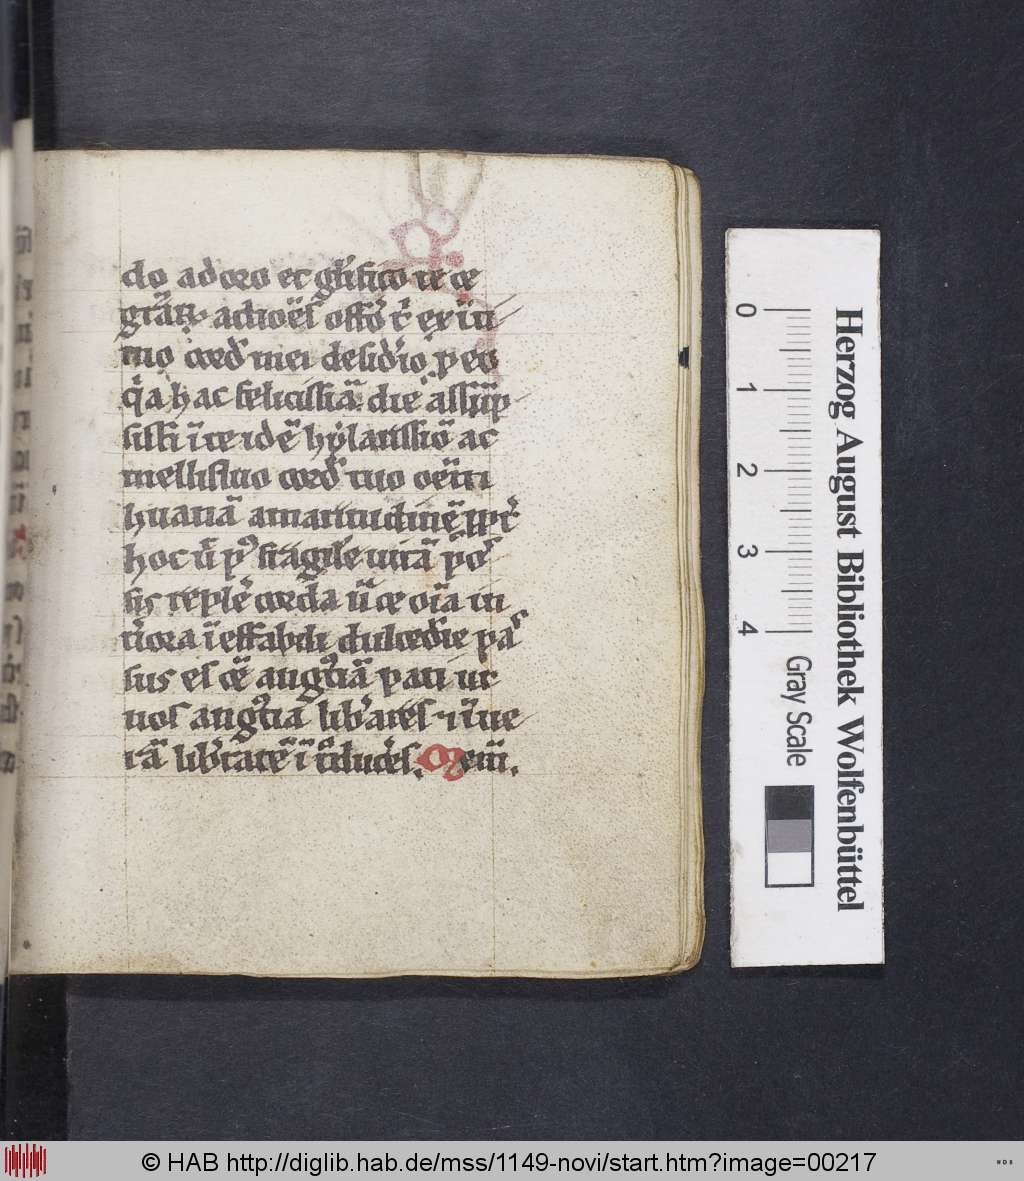 do adoro et gl̄ifico te ce
gr̄aꝝ actiōēs offō t̄ ex in
mo cord̓ mei desid̓io p eo
q̓a hac felicissīa die assūp
sisti ī te idē hylarissiō ac
mellifluo cord̓ tuo oēm
huānā amaritudinē
hoc fragilē uitā
sis replē corda oīa in
t̓iora ī effabili dulced̓ie pas
sus es angustiā pati ut
nos angustia lib̓ares ⁊ ī ue
rā lib̓tatē ītduc̓es. em̄.
0 1 2 3 4
Gray Scale
Herzog August Bibliothek Wolfenbüttel
© HAB http://diglib.hab.de/mss/1149-novi/start.htm?image=00217